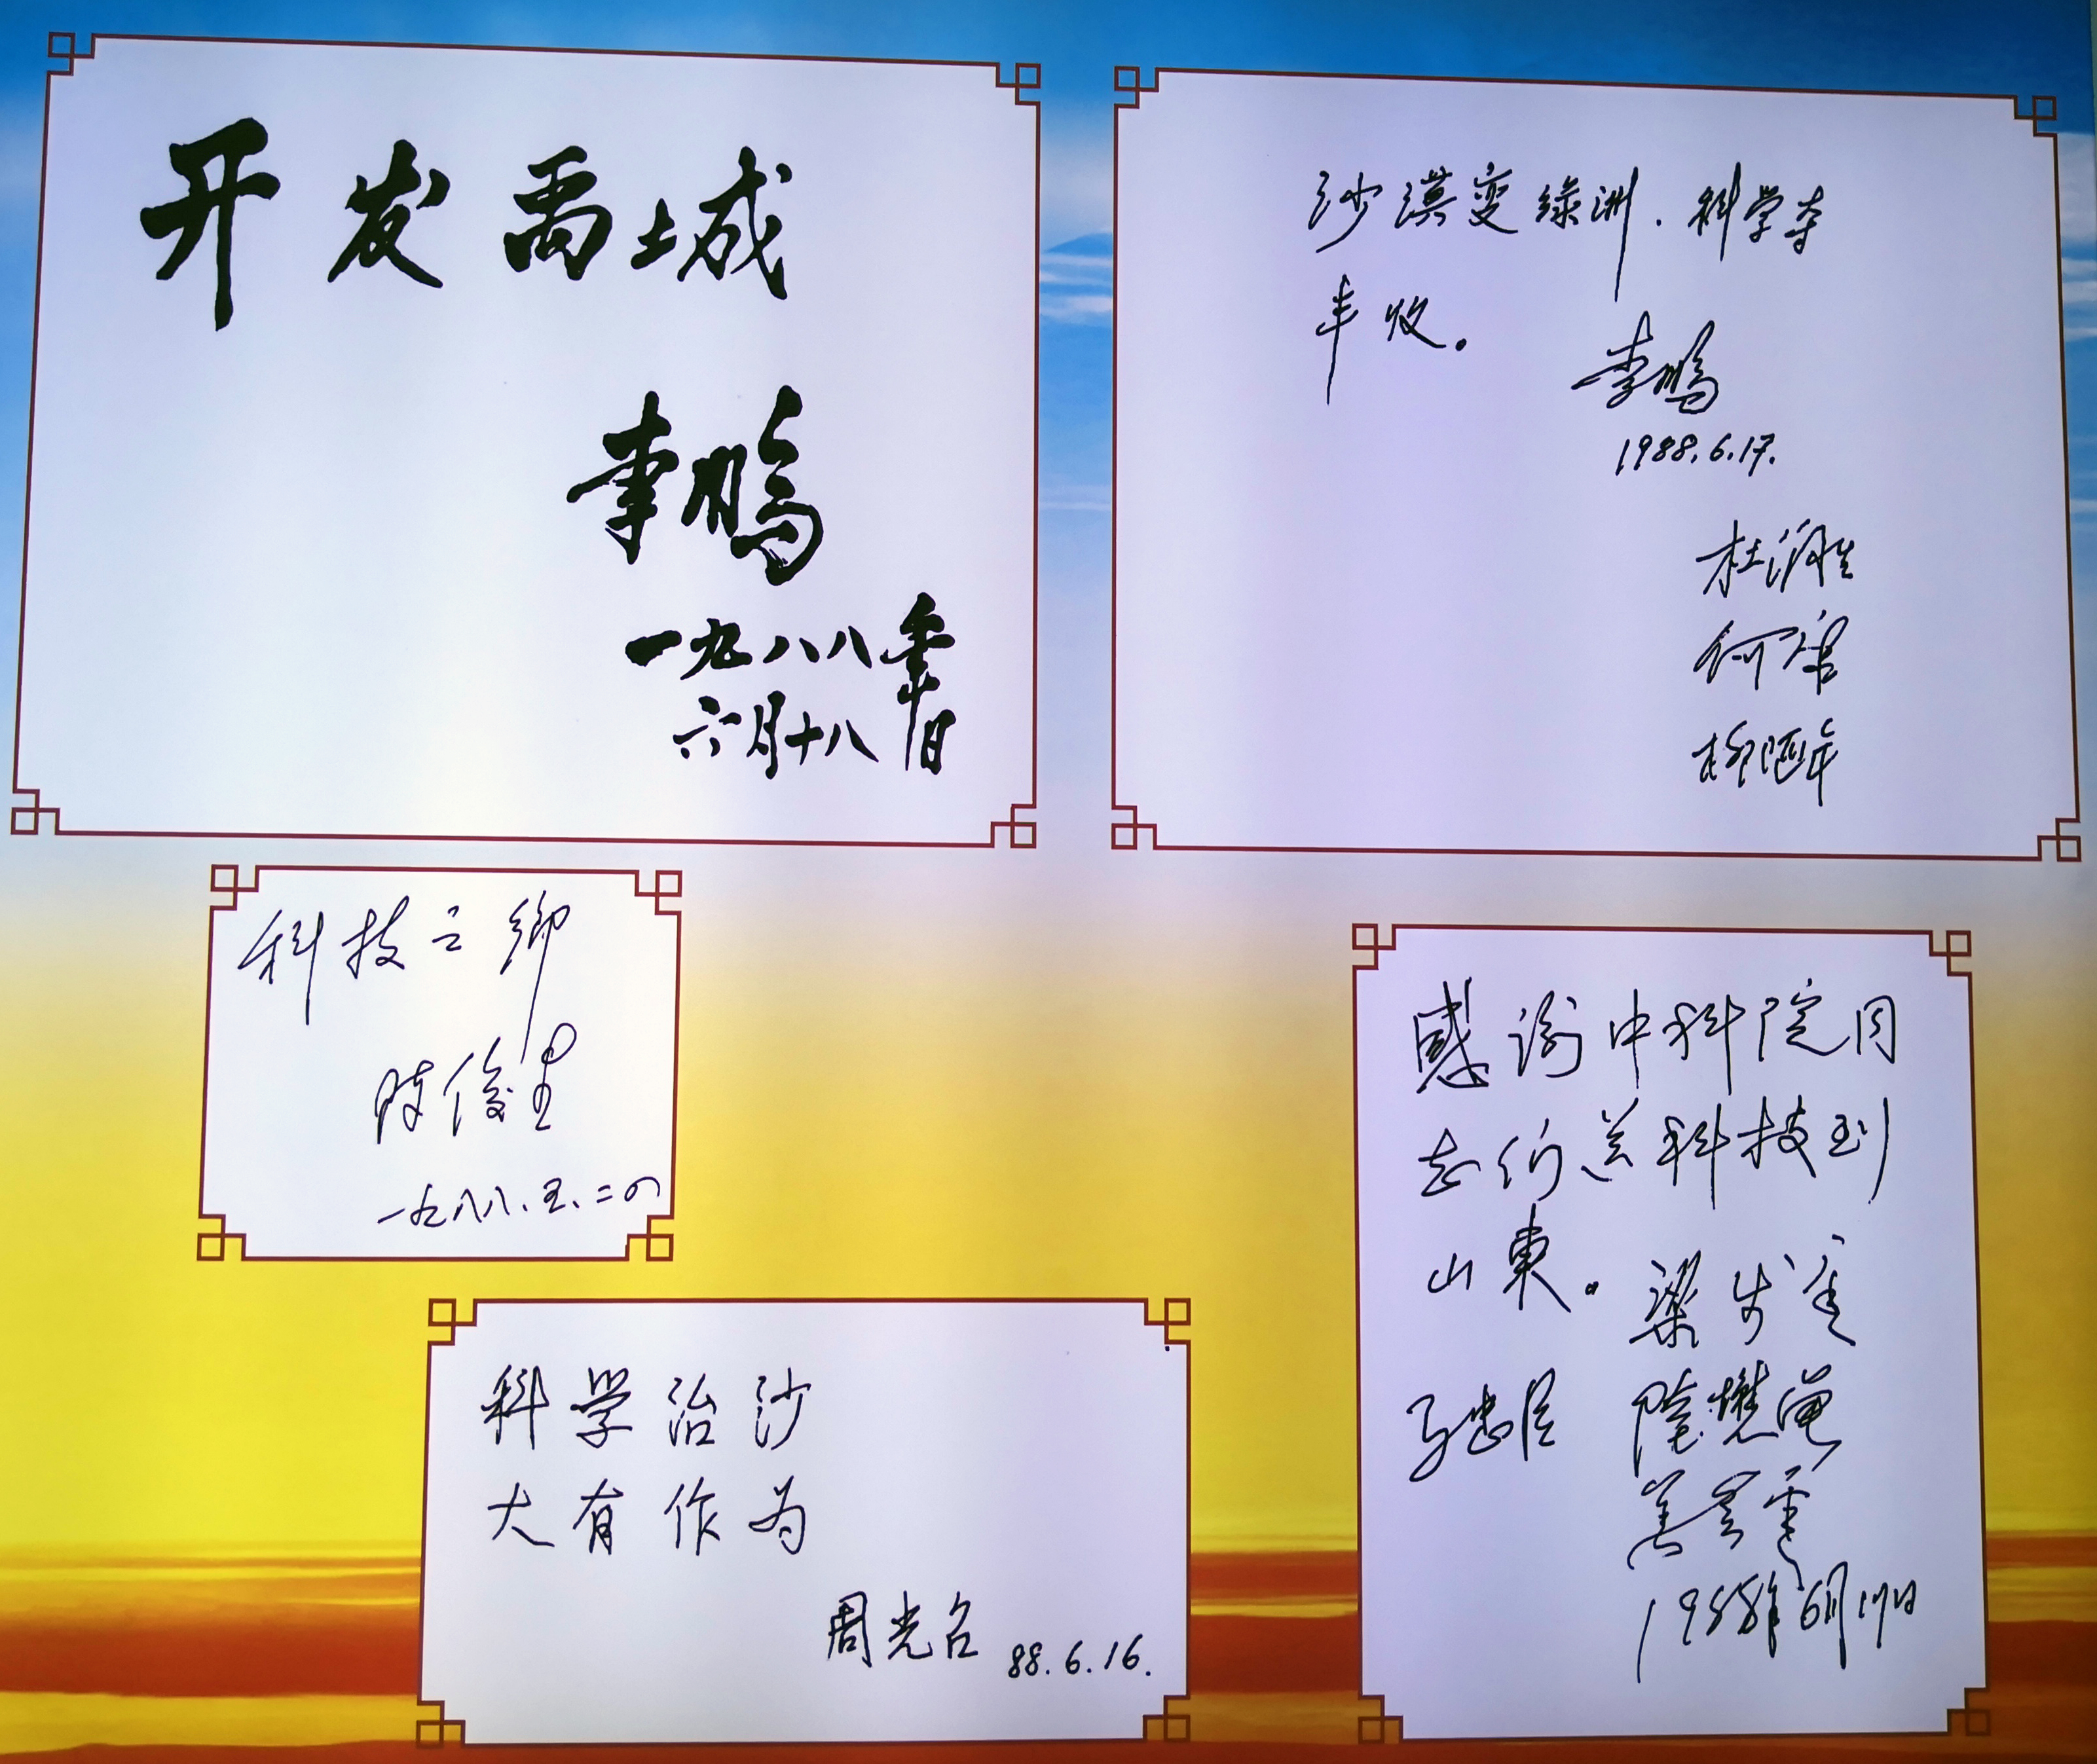 开发禹城
李鹏
一九八八年
六月十八日
沙漠变绿洲.科学夺
丰收。
李鹏
1988.6.17.
杜润生
何康
柳随年
科技之鄉
陈俊生
一九八八、五、二四
科学治沙
大有作为
周光召 88.6.16.
感谢中科院同
志们送科技到
山東。
梁步庭
马忠臣 陆懋曾
姜春云
1988年6月17日